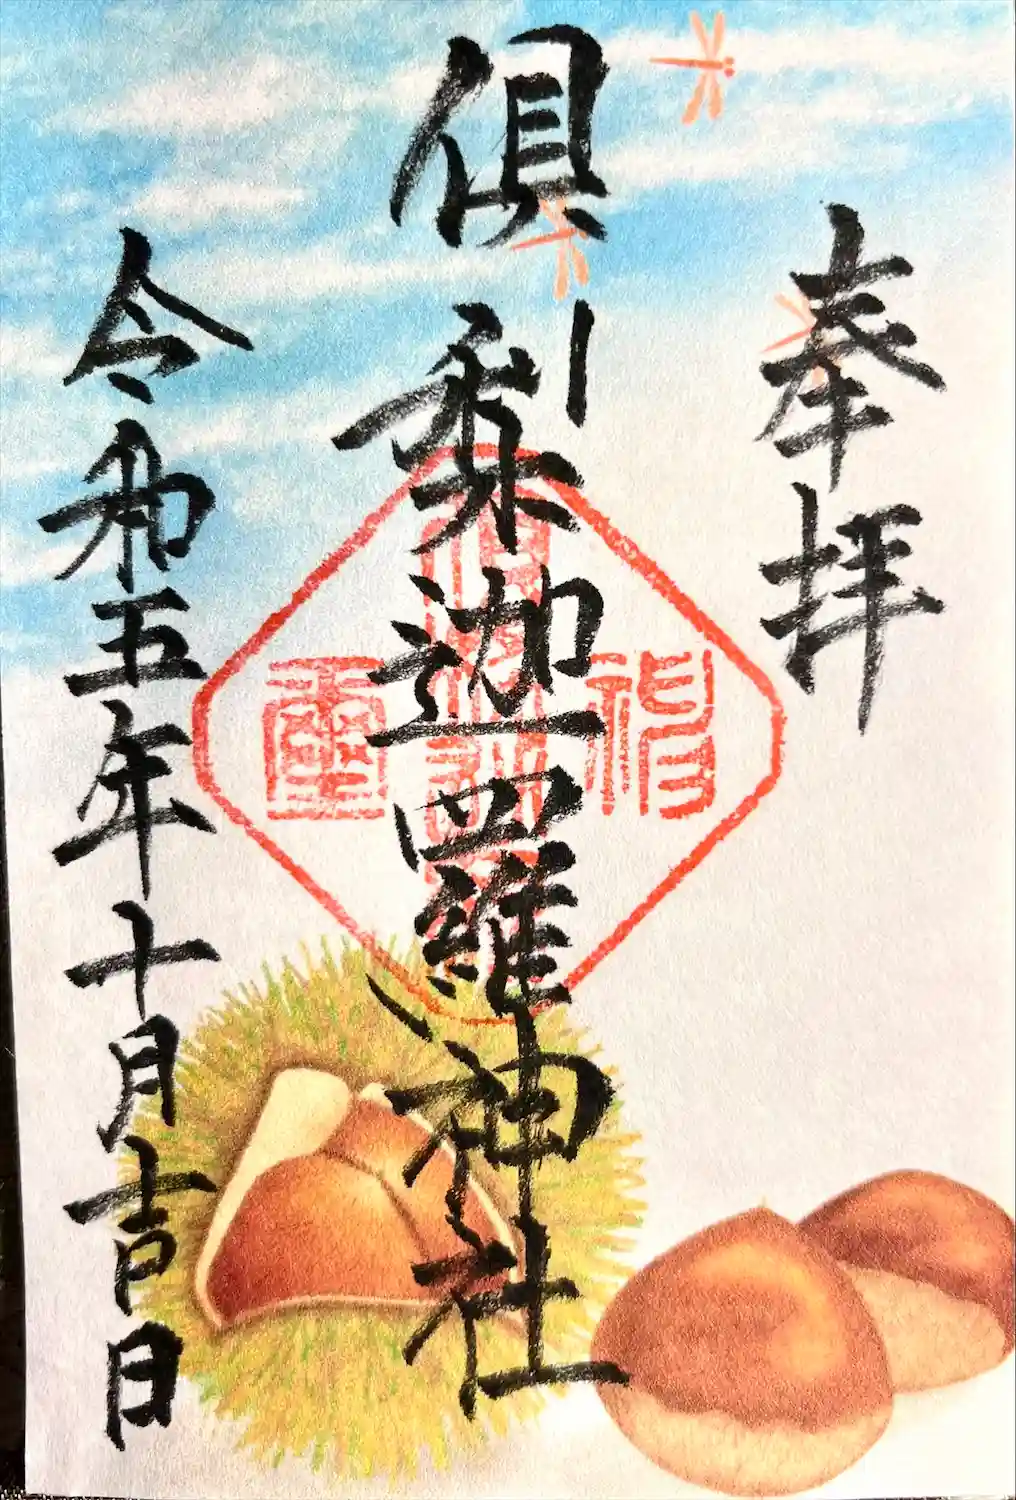 奉拝
倶梨迦羅神社
令和五年十月吉日